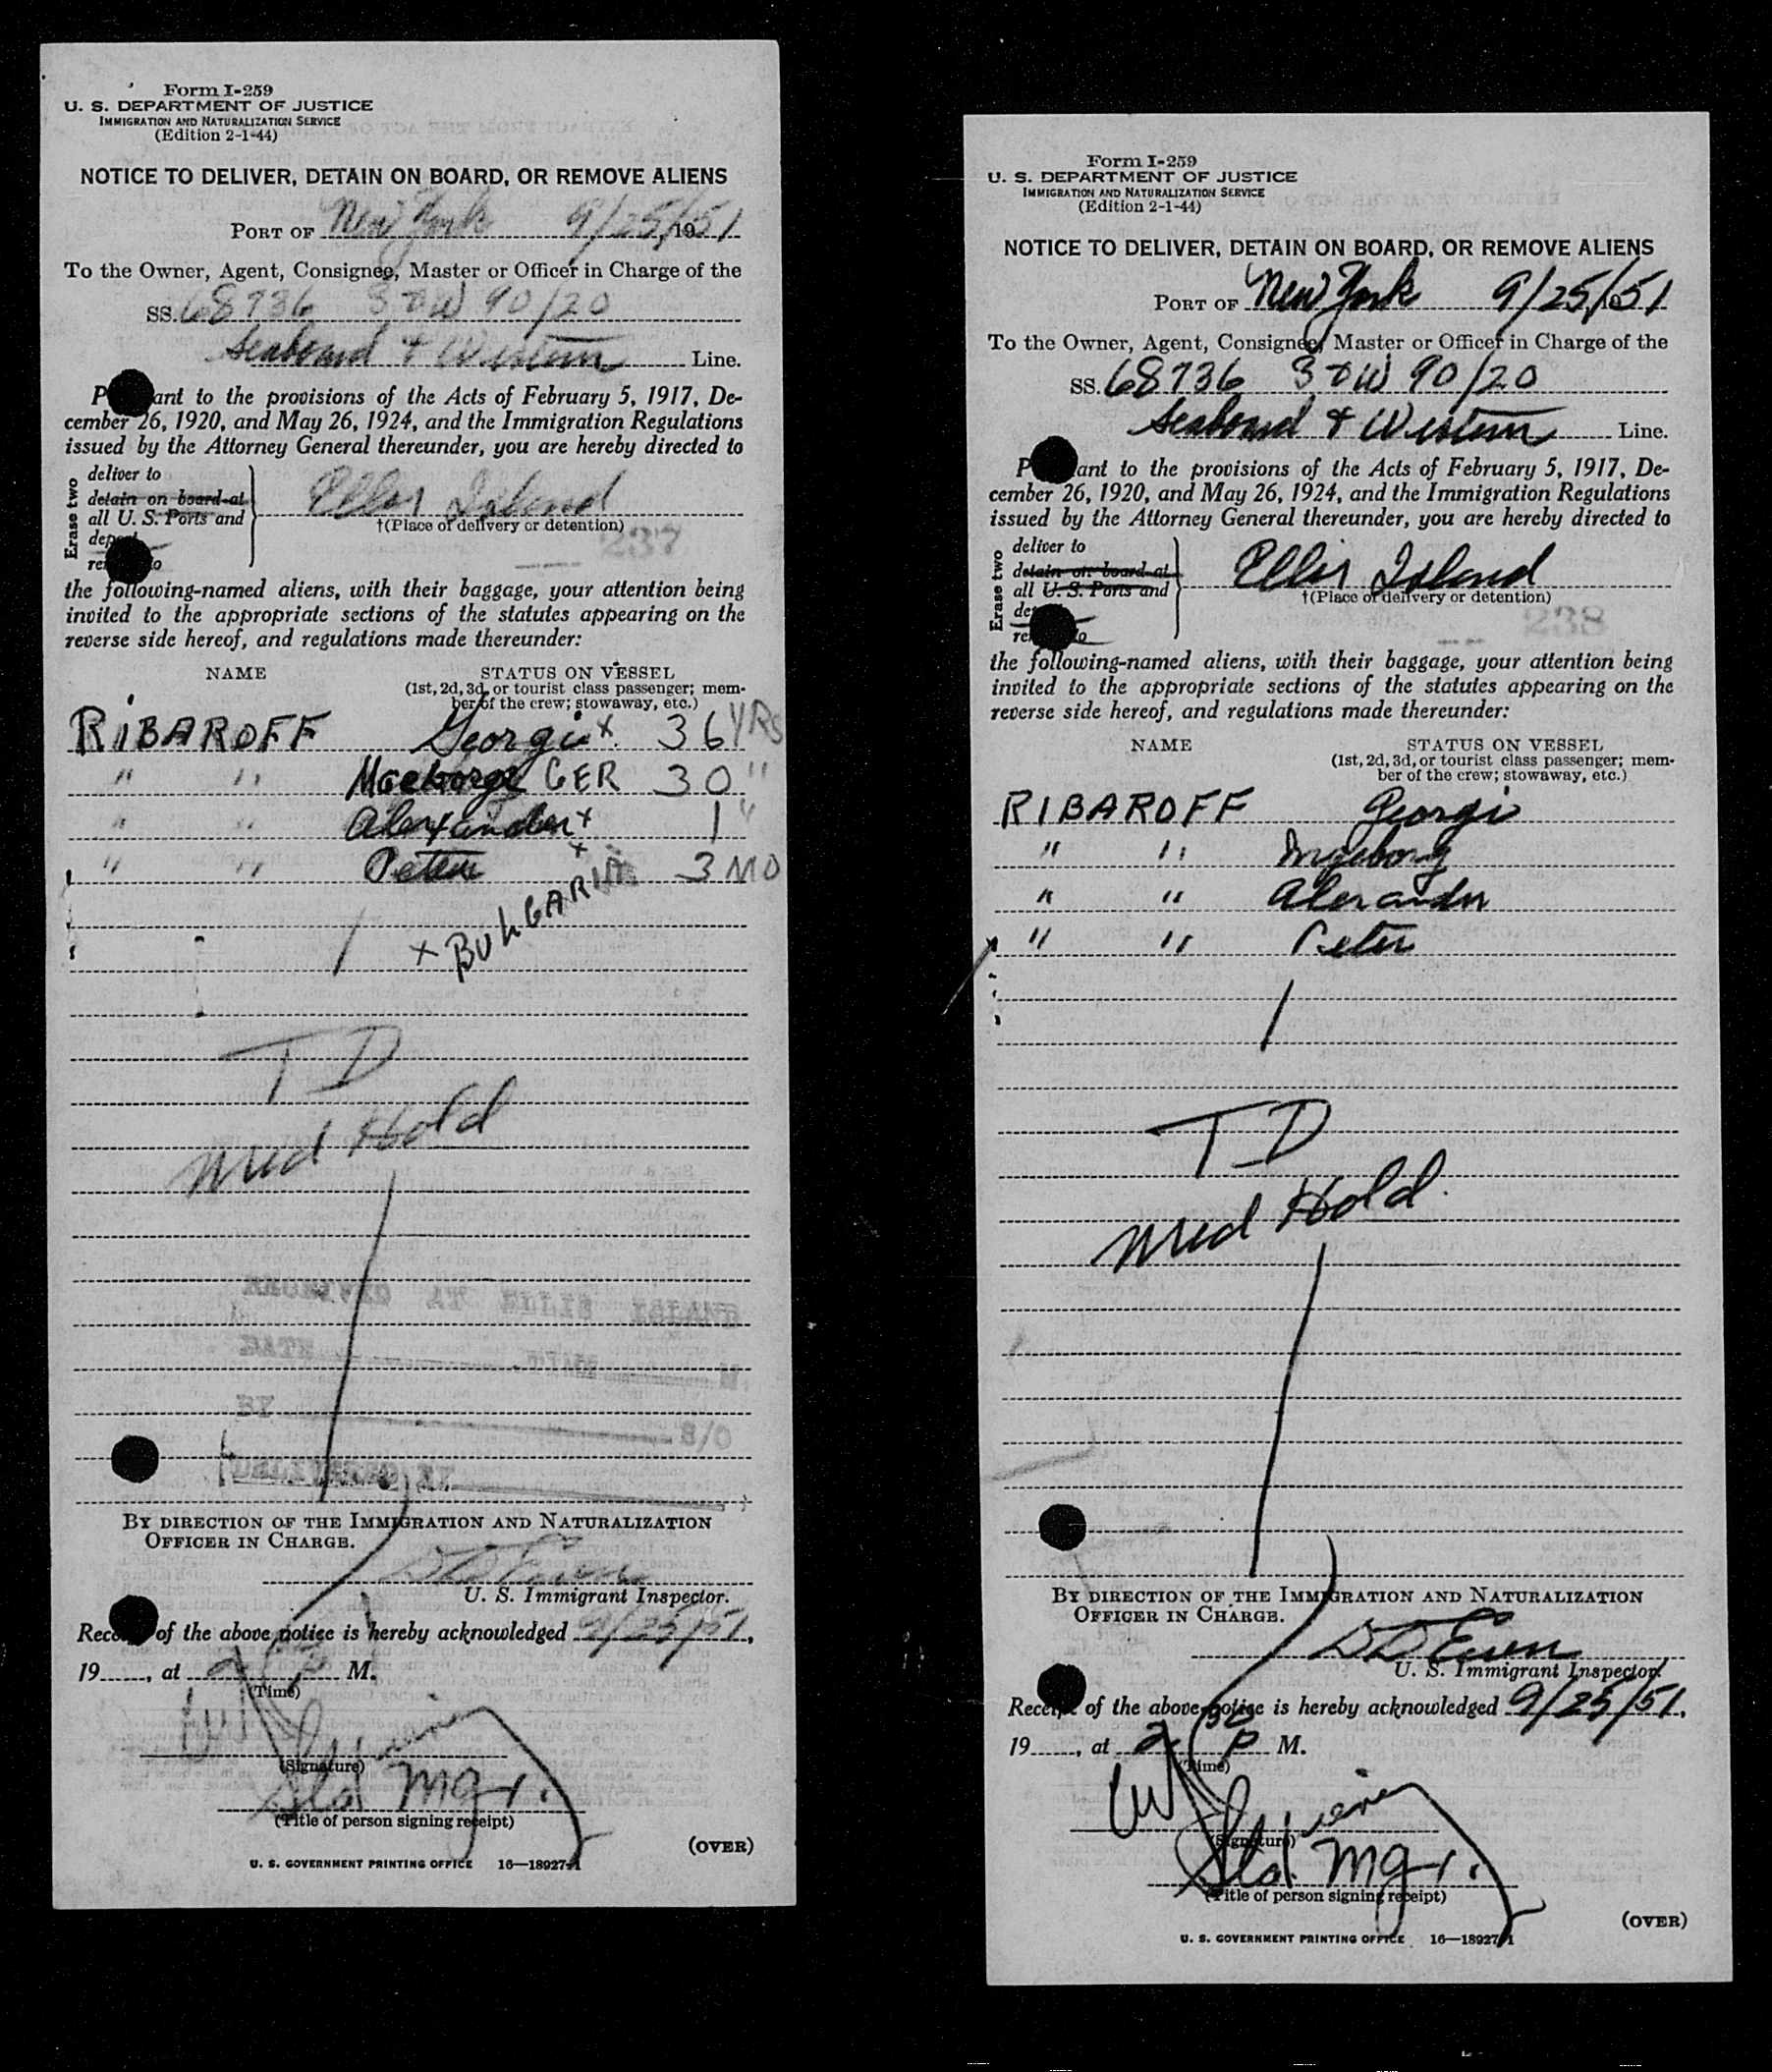 Form I-259
U. S. DEPARTMENT OF JUSTICE
IMMIGRATION AND NATURALIZATION SERVICE
(Edition 2-1-44)
NOTICE TO DELIVER, DETAIN ON BOARD, OR REMOVE ALIENS
PORT OF New York 9/25/51
To the Owner, Agent, Consignee, Master or Officer in Charge of the
SS. 68736 30W 90/20
Seaboard & Western Line.
P ant to the provisions of the Acts of February 5, 1917, De-
cember 26, 1920, and May 26, 1924, and the Immigration Regulations
issued by the Attorney General thereunder, you are hereby directed to
Erase two
deliver to
detain on board at
all U. S. Ports and
Ellis Island
†(Place of delivery or detention)
237
the following-named aliens, with their baggage, your attention being
invited to the appropriate sections of the statutes appearing on the
reverse side hereof, and regulations made thereunder:
NAME STATUS ON VESSEL
(1st, 2d, 3d, or tourist class passenger; mem-
ber of the crew; stowaway, etc.)
RIBAROFF Georgi x 36 YRS
" " GER 30 "
" " Alexander x 1 "
" " Peter x 3 MO
x BULGARIA
T D
Med Hold
BY DIRECTION OF THE IMMIGRATION AND NATURALIZATION
OFFICER IN CHARGE.
U. S. Immigrant Inspector.
Rece of the above notice is hereby acknowledged 9/25/51,
19 , at 2 P M.
(Time)
(Signature)
Sta Mgr.
(Title of person signing receipt)
(OVER)
U. S. GOVERNMENT PRINTING OFFICE 16—18927-1
Form I-259
U. S. DEPARTMENT OF JUSTICE
IMMIGRATION AND NATURALIZATION SERVICE
(Edition 2-1-44)
NOTICE TO DELIVER, DETAIN ON BOARD, OR REMOVE ALIENS
PORT OF New York 9/25/51
To the Owner, Agent, Consignee, Master or Officer in Charge of the
SS. 68736 30W 90/20
Seaboard & Western Line.
P ant to the provisions of the Acts of February 5, 1917, De-
cember 26, 1920, and May 26, 1924, and the Immigration Regulations
issued by the Attorney General thereunder, you are hereby directed to
Erase two
deliver to
detain on board at
all U. S. Ports and
Ellis Island
†(Place of delivery or detention)
238
the following-named aliens, with their baggage, your attention being
invited to the appropriate sections of the statutes appearing on the
reverse side hereof, and regulations made thereunder:
NAME STATUS ON VESSEL
(1st, 2d, 3d, or tourist class passenger; mem-
ber of the crew; stowaway, etc.)
RIBAROFF Georgi
" " Ingeborg
" " Alexander
" " Peter
T D
Med Hold
BY DIRECTION OF THE IMMIGRATION AND NATURALIZATION
OFFICER IN CHARGE.
U. S. Immigrant Inspector.
Receipt of the above notice is hereby acknowledged 9/25/51,
19 , at 2 30 P M.
(Time)
(Signature)
Sta. Mgr.
(Title of person signing receipt)
(OVER)
U. S. GOVERNMENT PRINTING OFFICE 16—18927-1